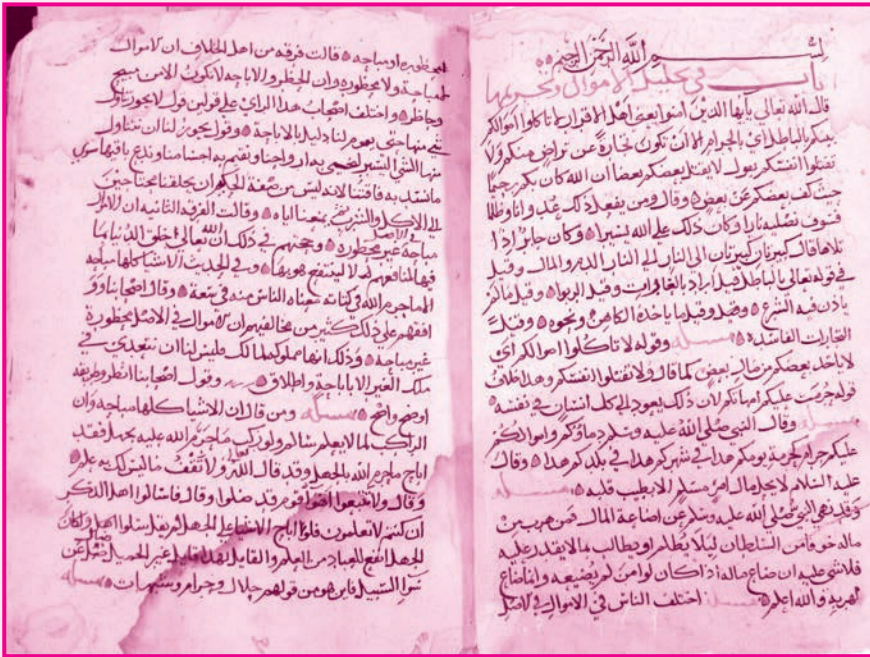 بسم الله الرحمن الرحيم
باب في تحليل الاموال وتحريمها
قال الله تعالى يايها الذين امنوا يعني اهل الاقرار لا تاكلوا اموالكم
بينكم بالباطل اي بالحرام الا ان تكون تجارة عن تراض منكم ولا
تقتلوا انفسكم يقول لا يقتل بعضكم بعضا ان الله كان بكم رحيما
حيث كف بعضكم عن بعض وقال ومن يفعل ذلك عدوانا وظلما
فسوف نصليه نارا وكان ذلك على الله يسيرا وكان جابر اذا
تلاها قال كبيرتان كبيرتان الى النار الى النار الدم والمال وقيل
في قوله تعالى بالباطل قيل اراد بالغابرات وقيل الربوا وقيل ما لم
ياذن فيه الشرع وقيل ما ياخذه الكاهن ونحوه وقيل
التجارات الفاسدة مسئلة وقوله لا تاكلوا اموالكم اي
لا ياخذ بعضكم من مال بعض كما قال ولا تقتلوا انفسكم وهذا خلاف
قوله حرمت عليكم امهاتكم لان ذلك يعود الى كل انسان في نفسه
مسئلة وقال النبي صلى الله عليه وسلم دماؤكم واموالكم
عليكم حرام كحرمة يومكم هذا في شهركم هذا في بلدكم هذا وقال
عليه السلام لا يحل مال امرئ مسلم الا بطيب قلبه مسئلة
وقد نهى النبي صلى الله عليه وسلم عن اضاعة المال فمن هرب من
ماله خوفا من السلطان ليلا يظلم او يطالب بما لا يقدر عليه
فلا شي عليه ان ضاع ماله اذا كان لو امن لم يضيعه وانما ضاع
لهربه والله اعلم مسئلة اختلف الناس في الاموال في الاصل
محظورة او مباحة قالت فرقة من اهل الخلاف ان الاموال
لا مباحة ولا محظورة وان الحظر والاباحة لا تكون الا من مبيح
وحاظر واختلف اصحاب هذا الراي على قولين قول لا يجوز تناول
شي منها حتى يقوم لنا دليل بالاباحة وقول يجوز لنا ان نتناول
منها الشي اليسير لنحيي به ارواحنا ونقيم به اجسامنا وندع باقيها سوى
ما نسد به فاقتنا لانه ليس من صفة الحكيم ان يخلقنا محتاجين
الى الاكل والشرب ثم يمنعنا اياه وقالت الفرقة الثانية ان الاموال
في الاصل
مباحة غير محظورة وحجتهم في ذلك ان الله تعالى خلق الدنيا بما
فيها لمنافعهم لا لينتفع هو بها وفي الحديث الاشيا كلها مباحة
الا ما حرم الله في كتابه الناس منه في سعة وقال اصحابنا ووا
افقهم على ذلك كثير من مخالفيهم ان الاموال في الاصل محظورة
غير مباحة وذلك انها مملوكة لمالك فليس لنا ان نتعدى في
ملك الغير الا باباحة واطلاق وقول اصحابنا انظر وطريقه
اوضح واتضح مسئلة ومن قال ان الاشيا كلها مباحة وان
الراكب لما لا يعلم سالم ولو ركب ما حرم الله عليه بجهل فقد
اباح ما حرم الله بالجهل وقد قال الله ولا تقف ما ليس لك به علم
وقال ولا تتبعوا اهوا قوم قد ضلوا وقال فاسالوا اهل الذكر
ان كنتم لا تعلمون فلو اباح الاشيا على الجهل لم يقل سلوا اهل ولكان
الجهل انفع للعباد من العلم والقايل بهذا قايل غير الجميل ضال عن
سوا السبيل فاين هو من قولهم حلال وحرام وشبهات مسئلة